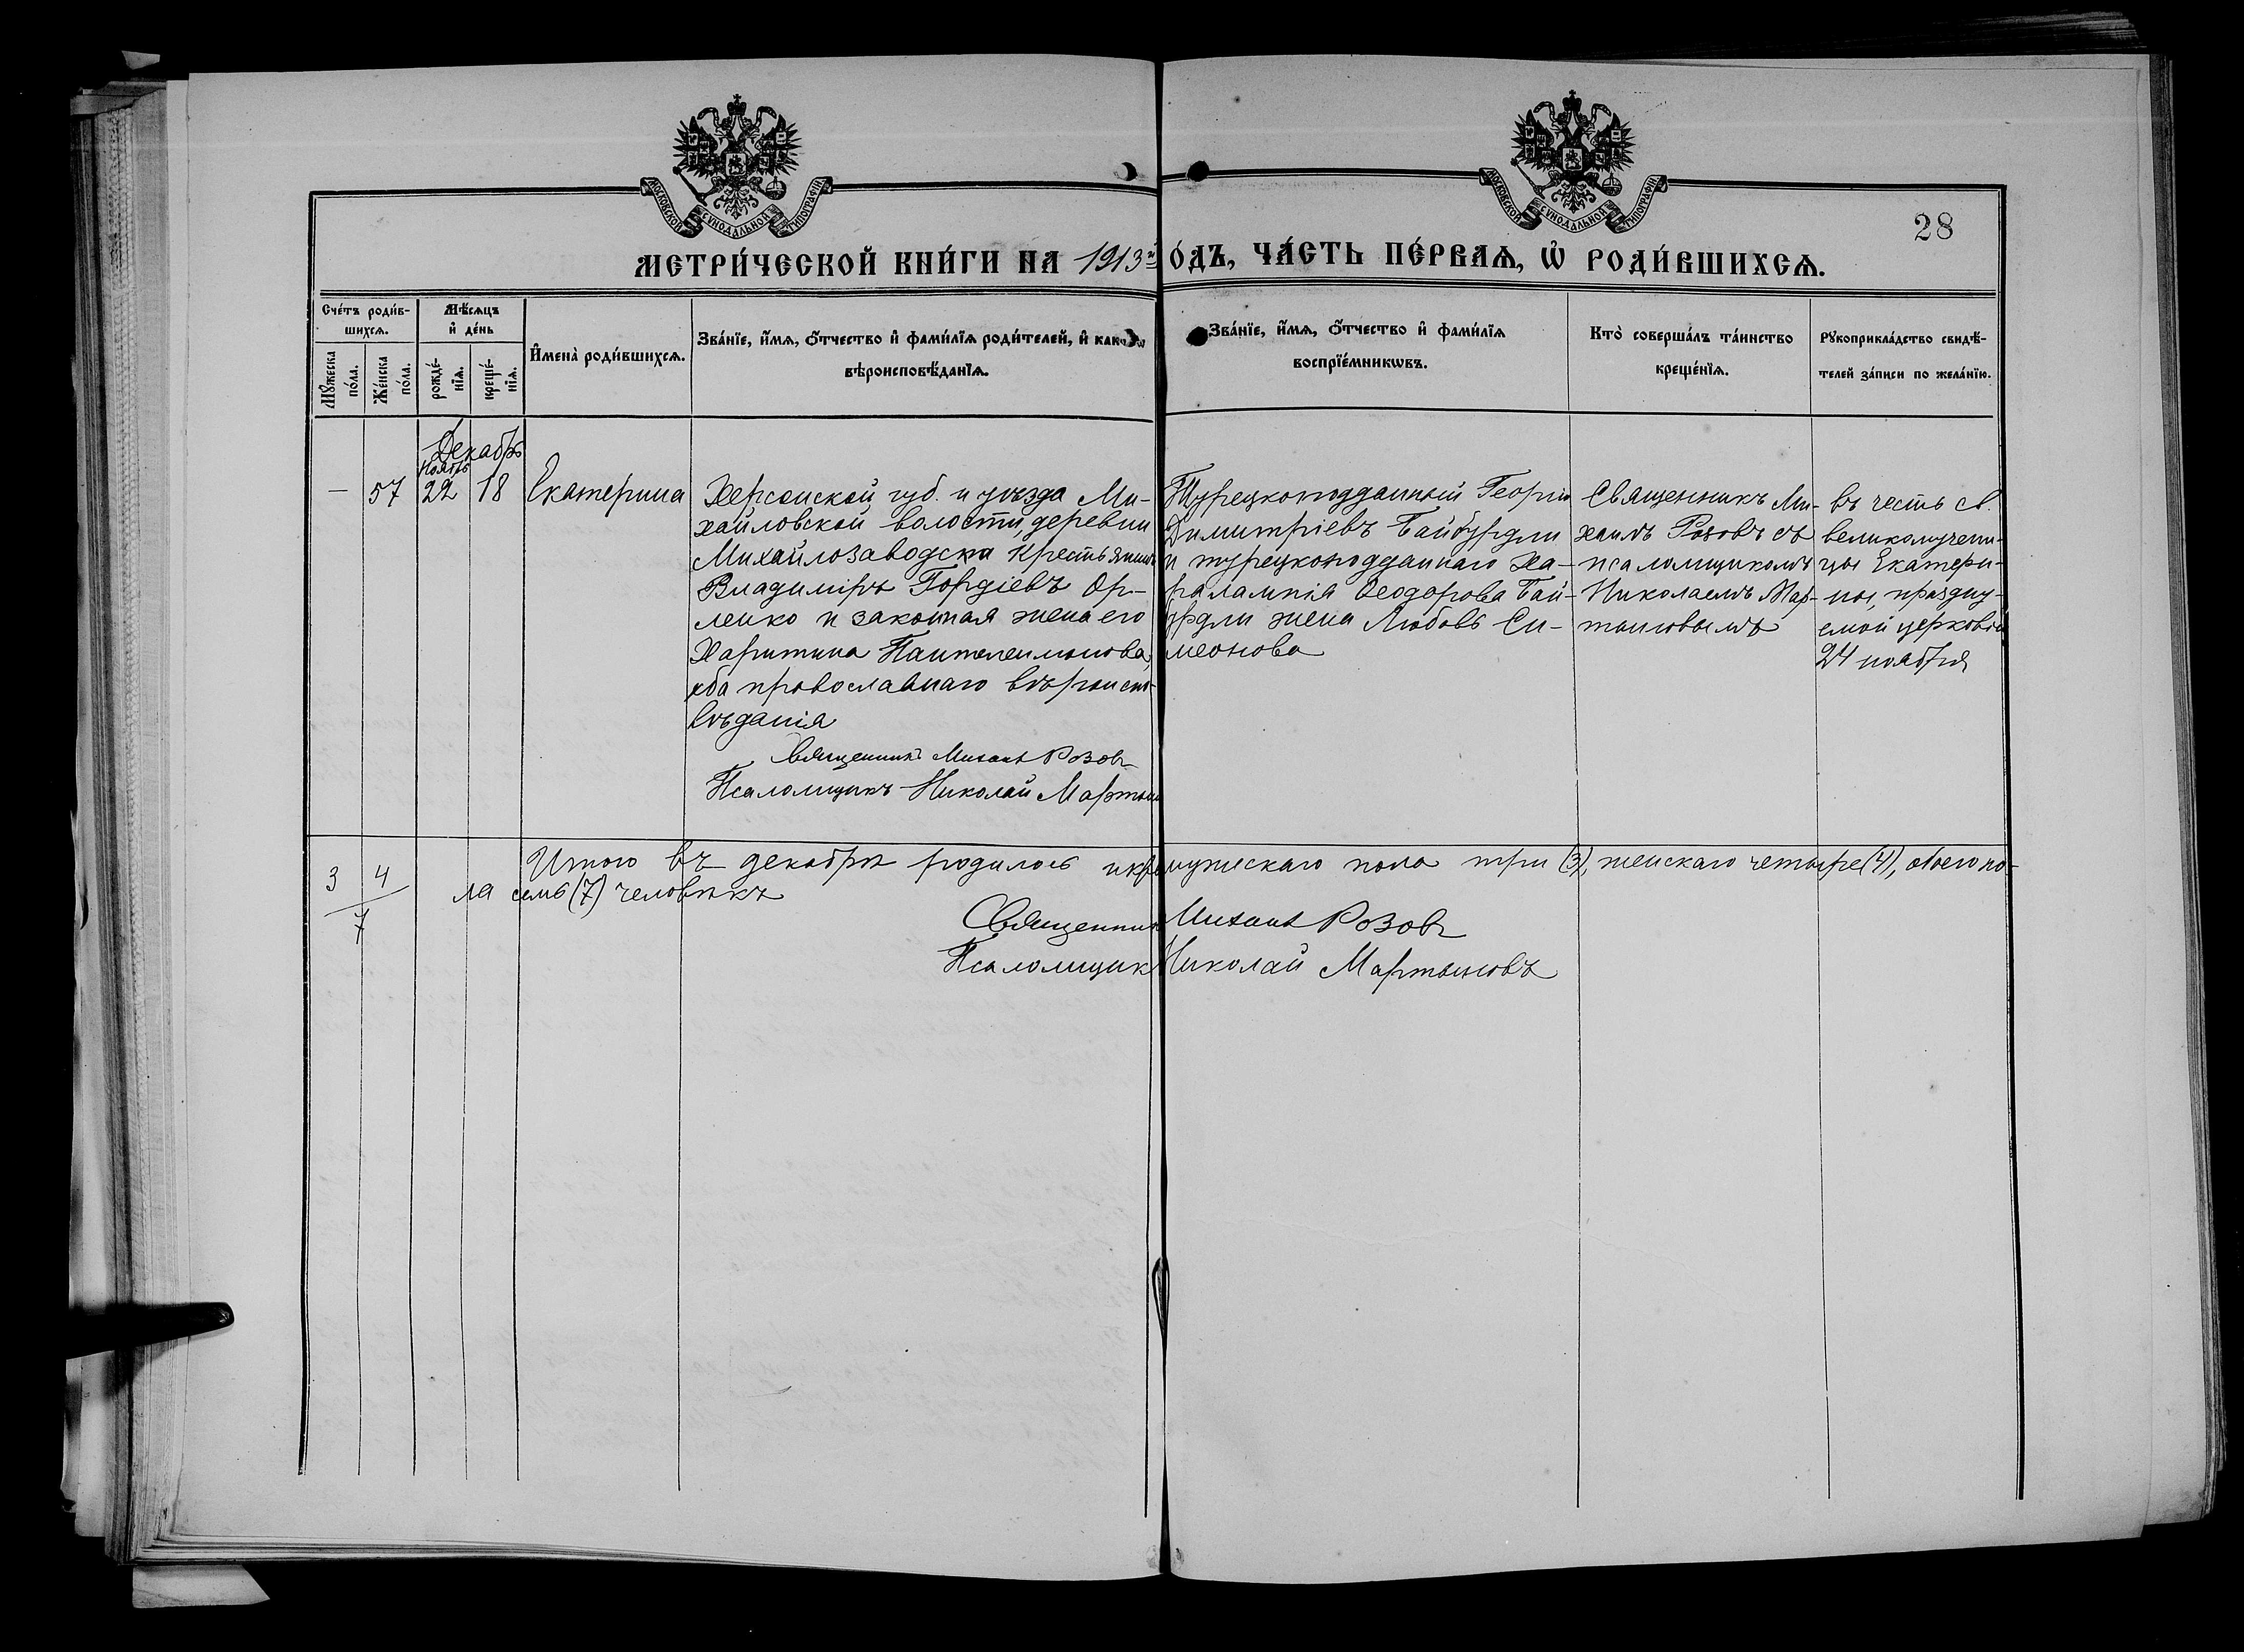 МОСКОВСКОЙ СѴНОДАЛЬНОЙ ТИПОГРАФІИ
МОСКОВСКОЙ СѴНОДАЛЬНОЙ ТИПОГРАФІИ
28
МЕТРИ́ЧЕСКОЙ КНИ́ГИ НА 1913й
О́ДЪ, ЧА́СТЬ ПЕ́РВАѦ, Ѡ҆ РОДИ́ВШИХСѦ.
Сче́тъ роди́в-
шихсѧ.
Мꙋ́жеска по́ла.
Же́нска по́ла.
Мѣ́сѧцъ
и҆ де́нь
рожде́-нїѧ.
креще́-нїѧ.
И҆мена̀ роди́вшихсѧ.
Зва́нїе, и҆́мѧ, ѻ҆́тчество и҆ фами́лїѧ роди́телей, и҆ как
вѣроисповѣ́данїѧ.
Зва́нїе, и҆́мѧ, ѻ҆́тчество и҆ фами́лїѧ
воспрїе́мникѡвъ.
Кто̀ соверша́лъ та́инство
креще́нїѧ.
Рꙋкоприкла́дство свидѣ́-
телей за́писи по жела́нїю.
Декабрь
Ноябрь
— 57 22 18 Екатерина
Херсонской губ. и уѣзда Ми-
хайловской волости, деревни
Михайлозаводска крестьянинъ
Владиміръ Гордіевъ Ор-
ленко и законная жена его
Харитина Пантелеимонова,
оба православнаго вѣроиспо-
вѣданія
Священникъ Михаилъ Розовъ
Псаломщикъ Николай Мартын
Турецкоподданный Георгій
Димитріевъ Байбурдли
и турецкоподданнаго Ха-
ралампія Ѳеодорова Бай-
бурдли жена Любовь Си-
меонова
Священникъ Ми-
хаилъ Розовъ съ
псаломщикомъ
Николаемъ Мар-
тыновымъ
въ честь св.
великомучени-
цы Екатери-
ны, праздну-
емой церковію
24 ноября
3 4
7
Итого въ декабрѣ родилось и кре мужескаго пола три (3), женскаго четыре (4), обоего по-
ла семь (7) человѣкъ
Священник Михаилъ Розовъ
Псаломщик Николай Мартыновъ